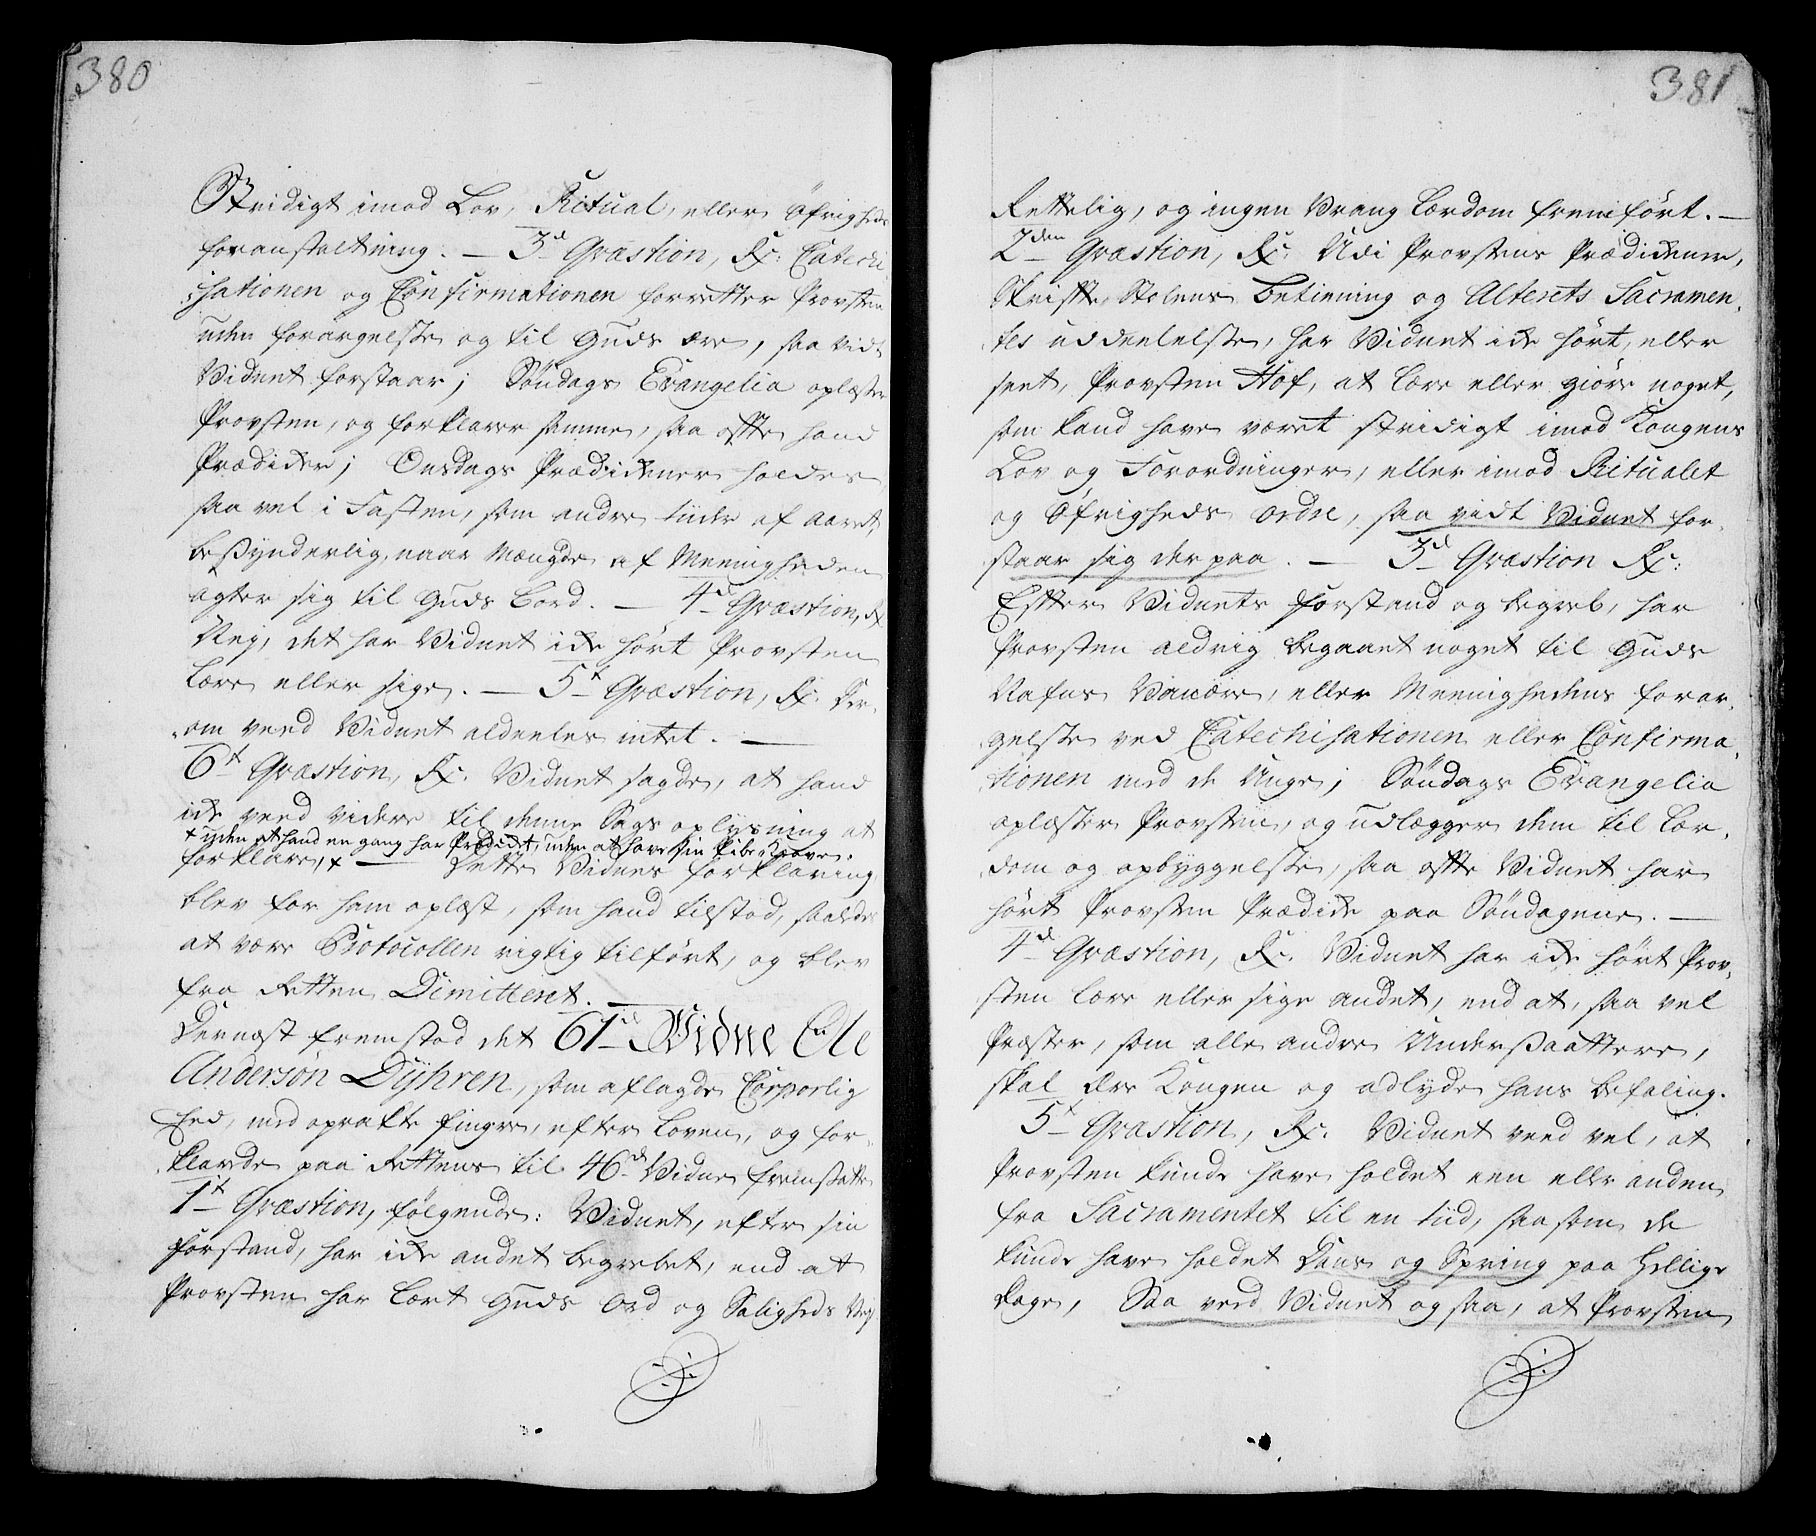 380
Stridigt imod Lov, Ritual, eller Øfrigheds
foranstaltning. — 3d Qvæstion, Rx: Catechi
sationen og Confirmationen forretter Provsten
uden forargelse og til Guds ære, saa vidt
Vidnet forstaar; Søndags Evangelia oplæser
Provsten, og forklarer samme, saa offte hand
Prædiker; Onsdags Prædikener holdes
saa vel i Fasten, som andre tiider af aaret,
besynderlig, naar Mængde af Meenigheden
agter sig til Guds Bord. — 4d Qvæstion, Rx
Nej, det har Vidnet ikke hørt Provsten
Lære eller sige. — 5t Qvæstion, Rx. Der-
om veed Vidnet aldeeles intet. —
6t Qvæstion, Rx. Vidnet sagde, at hand
ikke veed videre til denne Sags oplysning at
+ uden at hand en gang har Prædiket, uden at have sin Pibe-Krave.
forklare, + — Dette Vidnes forklaring
blev for ham oplæst, som hand tilstod, saaledes
at være Protocollen rigtig tilført, og blev
fra Retten Dimitteret. —
Dernæst fremstod det 61de Vidne Ole
Andersøn Dyhren, som aflagde Corporlig
Eed, med oprakte fingre, efter Loven, og for-
klarede paa Rettens til 46d Vidne fremsatte
1t Qvæstion, følgende: Vidnet, efter sin
forstand, har ikke andet begrebet, end at
Provsten har lært Guds Ord og Saligheds Vej
381
Rettelig, og ingen Vrang Lærdom fremført. —
2den Qvæstion, Rx. Udi Provstens Prædikener,
Skrifte Stolens betiening og Alterets Sacramen-
tes uddeelelse, har Vidnet ikke hørt, eller
seet, Provsten Hof, at lære eller giøre noget,
som kand have været stridigt imod Kongens
Lov og Forordninger, eller imod Ritualet
og Øfrigheds ordre, saa vidt Vidnet for-
staar sig der paa. — 3d Qvæstion Rx:
Effter Vidnets forstand og begreb, har
Provsten aldrig begaaet noget til Guds
Nafns Vanære, eller Meenighedens forar-
gelse ved Catechisationen eller Confirma-
tionen med de Unge; Søndags Evangelia
oplæser Provsten, og udlægger dem til Lær-
dom og opbyggelse, saa offte Vidnet har
hørt Provsten Prædike paa Søndagene. —
4d Qvæstion, Rx. Vidnet har ikke hørt Prov-
sten lære eller sige andet, end at, saa vel
Præster, som alle andre Undersaattere,
skal ære Kongen og adlyde hans befaling.
5t Qvæstion, Rx. Vidnet veed vel, at
Provsten kunde have holdet een eller anden
fra Sacramentet til en tiid, saasom de
kunde have holdet Dans og Spring paa Hellige
Dage, Saa veed Vidnet og saa, at Provsten